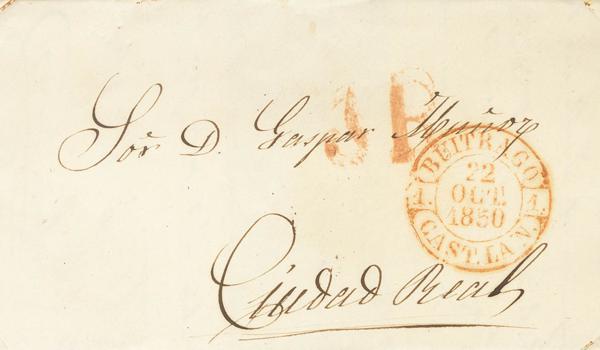 Sor. D. Gaspar Muñoz
BUITRAGO
22
OCT.
1850
1. 1.
CAST. LA N.
Ciudad Real